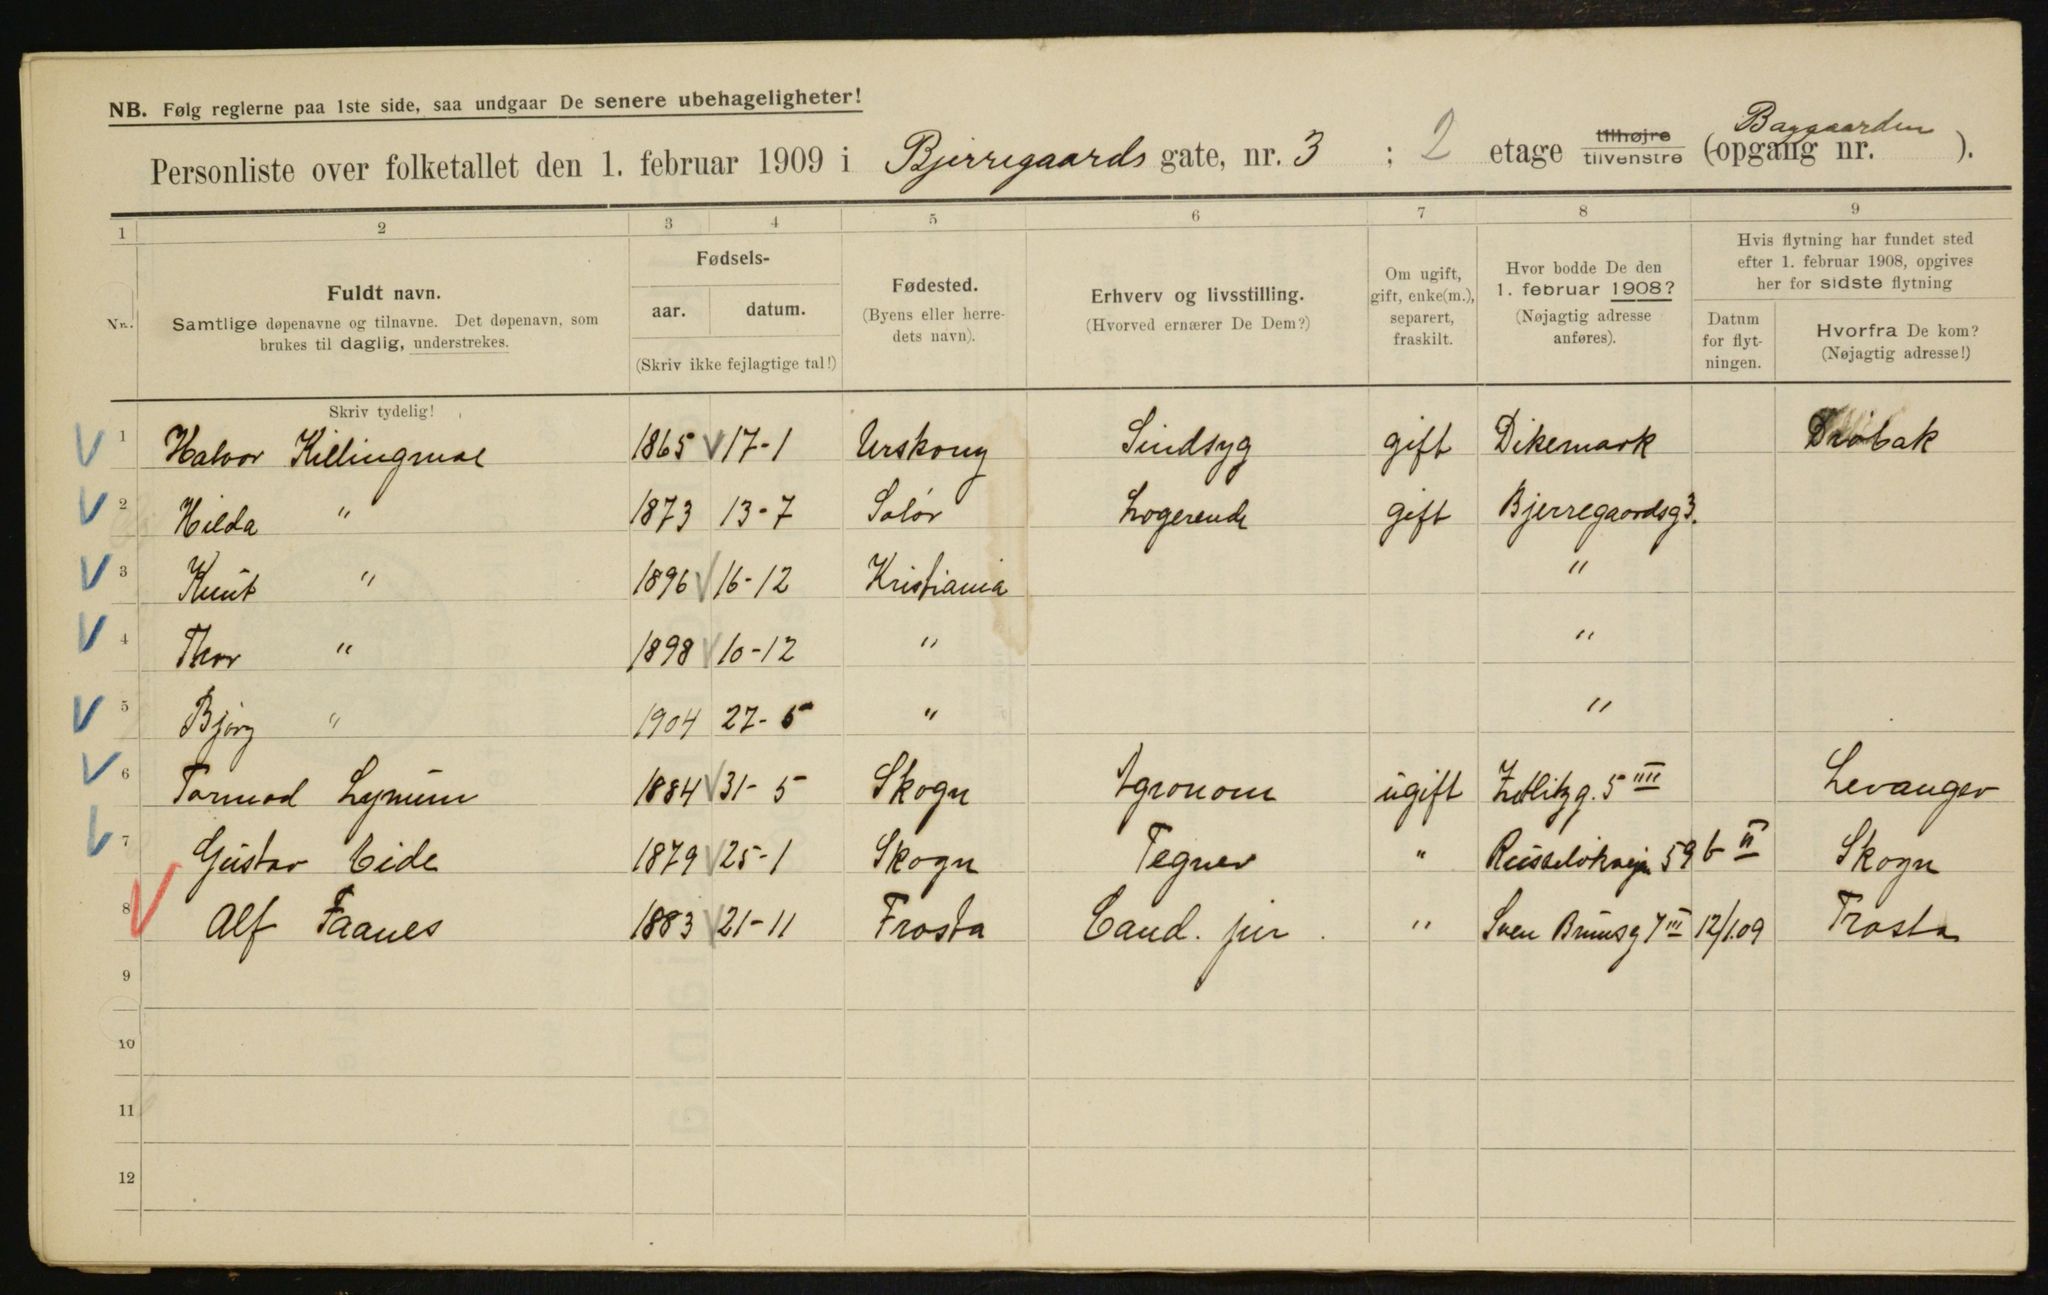 NB. Følg reglerne paa 1ste side, saa undgaar De senere ubehageligheter!
Baggaarden
Personliste over folketallet den 1. februar 1909 i Bjerregaards gate, nr. 3 ; 2 etage tilhøjre tilvenstre (opgang nr. ).
1 2 3 4 5 6 7 8 9
Nr. Fuldt navn. Samtlige døpenavne og tilnavne. Det døpenavn, som brukes til daglig, understrekes.
Fødsels- aar. datum. (Skriv ikke fejlagtige tal!)
Fødested. (Byens eller herredets navn).
Erhverv og livsstilling. (Hvorved ernærer De Dem?)
Om ugift, gift, enke(m.), separert, fraskilt.
Hvor bodde De den 1. februar 1908? (Nøjagtig adresse anføres).
Hvis flytning har fundet sted efter 1. februar 1908, opgives her for sidste flytning
Datum for flytningen.
Hvorfra De kom? (Nøjagtig adresse!)
Skriv tydelig!
1 Halvor Killingmoe 1865 17-1 Urskoug Sindsyg gift Dikemark Drøbak
2 Hilda " 1873 13-7 Solør Logerende gift Bjerregaardsg 3.
3 Knut " 1896 16-12 Kristiania "
4 Thor " 1898 10-12 " "
5 Bjørg " 1904 27-5 " "
6 Tormod Lynum 1884 31-5 Skogn Agronom ugift Zetlitzg. 5 IIII Levanger
7 Gustav Eide 1879 25-1 Skogn Tegner " Russeløkvejen 59 b II Skogn
8 Alf Faanes 1883 21-11 Frosta Cand. jur. " Sven Brunsg 7 III 12/1.09 Frosta
9
10
11
12